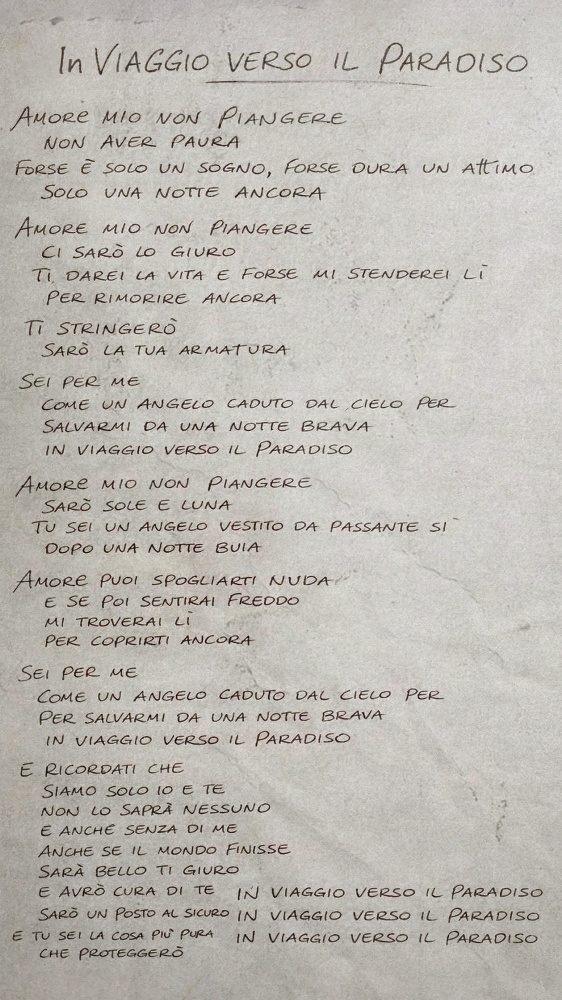 In VIAGGIO VERSO IL PARADISO
AMORE MIO NON PIANGERE
NON AVER PAURA
FORSE È SOLO UN SOGNO, FORSE DURA UN ATTIMO
SOLO UNA NOTTE ANCORA
AMORE MIO NON PIANGERE
CI SARÒ LO GIURO
TI DAREI LA VITA E FORSE MI STENDEREI LÌ
PER RIMORIRE ANCORA
TI STRINGERÒ
SARÒ LA TUA ARMATURA
SEI PER ME
COME UN ANGELO CADUTO DAL CIELO PER
SALVARMI DA UNA NOTTE BRAVA
IN VIAGGIO VERSO IL PARADISO
AMORE MIO NON PIANGERE
SARÒ SOLE E LUNA
TU SEI UN ANGELO VESTITO DA PASSANTE SÌ
DOPO UNA NOTTE BUIA
AMORE PUOI SPOGLIARTI NUDA
E SE POI SENTIRAI FREDDO
MI TROVERAI LÌ
PER COPRIRTI ANCORA
SEI PER ME
COME UN ANGELO CADUTO DAL CIELO PER
PER SALVARMI DA UNA NOTTE BRAVA
IN VIAGGIO VERSO IL PARADISO
E RICORDATI CHE
SIAMO SOLO IO E TE
NON LO SAPRÀ NESSUNO
E ANCHE SENZA DI ME
ANCHE SE IL MONDO FINISSE
SARÀ BELLO TI GIURO
E AVRÒ CURA DI TE IN VIAGGIO VERSO IL PARADISO
SARÒ UN POSTO AL SICURO IN VIAGGIO VERSO IL PARADISO
E TU SEI LA COSA PIÙ PURA IN VIAGGIO VERSO IL PARADISO
CHE PROTEGGERÒ